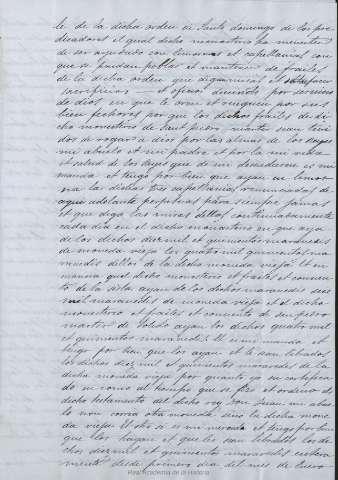 le de la dicha orden de Santo domingo de los pre-
dicadores el qual dicho monasterio ha menester
de ser ayudado con limosnas et capellanias con
que se puedan poblar et mantener de frailes
de la dicha orden que digan misas et
sacrificios et oficios divinales por servicio
de dios en que le oren et rueguen por sus
bien fechores por que los dichos frailes de di-
cho monesterio de Sant pedro martir sean teni-
dos de rogar a dios por las almas de los Reyes
mi abuelo et mi padre et por la mi vida
et salud et de los Reyes que de mi descendieren es mi
merced et tengo por bien que ayan en limos-
na las dichas tres capellanias renunciadas de
aqui adelante perpetuas para siempre jamas
et que diga las misas dellas continuadamente
cada dia en el dicho monasterio en que aya
de los dichos diez mil et quinientos maravedis
de moneda vieja los quatro mil quinientos ma-
ravedis dellos de la dicha moneda vieja et en
manera quel dicho monesterio et frailes et conven-
to de la sisla ayan de los dichos maravedis seis
mil maravedis de moneda vieja et el dicho
monesterio et frailes et convento de san pedro
martir de toledo ayan los dichos quatro mil
et quinientos maravedis. Et es mi merced et
tengo por bien que los ayan et le sean librados
los dichos diez mil et quinientos maravedis de la
dicha moneda vieja por quanto yo so certifica-
do su como al tiempo que se fizo et ordeno el
dicho testamento del dicho rey don Juan mi abue-
lo non corria otra moneda sino la dicha mone-
da vieja. Et otro si es mi merced et tengo por bien
que los hayan et que les sean librados los di-
chos diez mil et quinientos maravedis entera-
mente desde primero dia del mes de Enero
Real Academia de la Historia